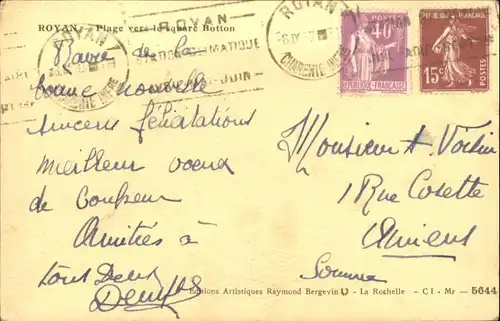 ROYAN - Plage vers le square Botton
ROYAN
STATION CLIMATIQUE
JUIN
ROYAN
CHARENTE INFRE
ROYAN
CHARENTE INFRE
40c
REPUBLIQUE FRANÇAISE
REPUBLIQUE FRANÇAISE
15c
Ravie de la
bonne nouvelle
sincères félicitations
meilleur voeux
de
Amitiés à
tous deux
Monsieur
1 Rue Cosette
Amiens
Somme
Editions Artistiques Raymond Bergevin - La Rochelle - C I - Mr - 5644